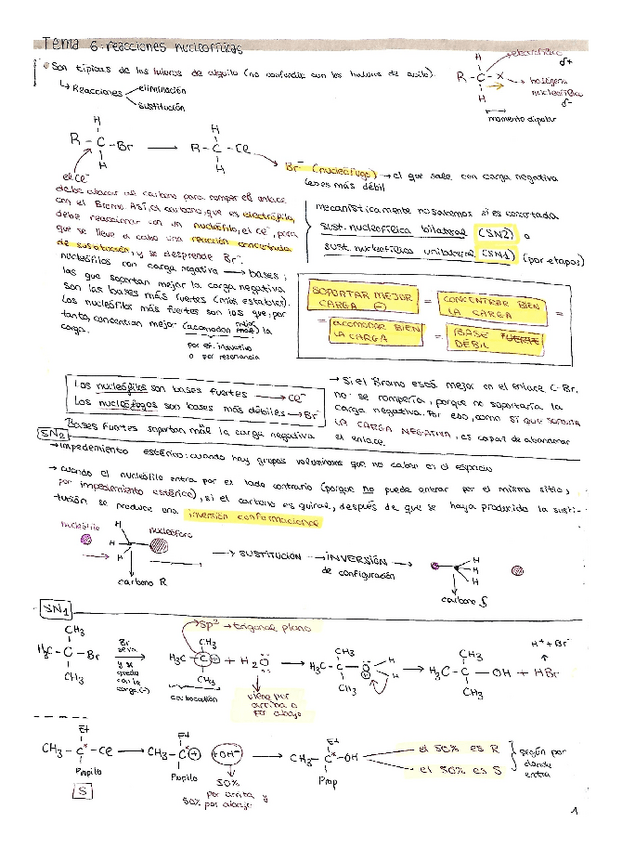 Tema 6: reacciones nucleofílicas
Son típicas de los haluros de alquilo (no confundir con los haluros de acilo).
↳ Reacciones eliminación
sustitución
H
R - C - X
H
electrófilo δ+
halógeno
nucleófilo δ-
momento dipolar
H
R - C - Br → R - C - Cl
H
Br⁻ (nucleófugo) → el que sale con carga negativa
es más débil
el Cl⁻
debe atacar al carbono para romper el enlace
con el Bromo. Así, el carbono, que es electrófilo,
debe reaccionar con un nucleófilo, el Cl⁻, para
que se lleve a cabo una reacción concertada
de sustitución, y se desprende Br⁻.
nucleófilos con carga negativa → bases;
las que soportan mejor la carga negativa
son las bases más fuertes (más estables).
Los nucleófilos más fuertes son los que, por
tanto, concentran mejor (acomodan mejor) la
carga.
por ef. inductivo
o por resonancia
mecanísticamente no sabemos si es concertada
sust. nucleofílica bilateral (SN2) o
sust. nucleofílica unilateral (SN1) (por etapas)
SOPORTAR MEJOR
CARGA ⊖
=
CONCENTRAR BIEN
LA CARGA
=
= ACOMODAR BIEN
LA CARGA
= BASE FUERTE
DÉBIL
Los nucleófilos son bases fuertes → Cl⁻
Los nucleófugos son bases más débiles → Br⁻
Bases fuertes soportan mal la carga negativa
→ Si el Bromo está mejor en el enlace C-Br.
no se rompería, porque no soportaría la
carga negativa. Por eso, como SÍ QUE SOPORTA
LA CARGA NEGATIVA, es capaz de abandonar
el enlace.
SN2
→ Impedimento estérico: cuando hay grupos voluminosos que no caben en el espacio
→ cuando el nucleófilo entra por el lado contrario (porque no puede entrar por el mismo sitio,
por impedimento estérico), si el carbono es quiral, después de que se haya producido la susti-
tución se produce una inversión conformacional
nucleófilo
nucleófugo
H
H
carbono R
→ SUSTITUCIÓN → INVERSIÓN →
de configuración
H
H
H
carbono S
SN1
sp² → trigonal plano
CH3
H3C - C - Br
CH3
Br
se va
y se
queda
con la
carga (-)
CH3
H3C - C + H2O
CH3
carbocatión
viene por
arriba o
por abajo
CH3
H3C - C - O
H
H
CH3
CH3
H3C - C - OH + HBr
CH3
H⁺ + Br⁻
Et
CH3 - C* - Cl
Propilo
S
Et
CH3 - C +
Propilo
+OH⁻
50%
por arriba y
50% por abajo
Et
CH3 - C* - OH
Prop
el 50% es R
el 50% es S
según por
donde
entra
1